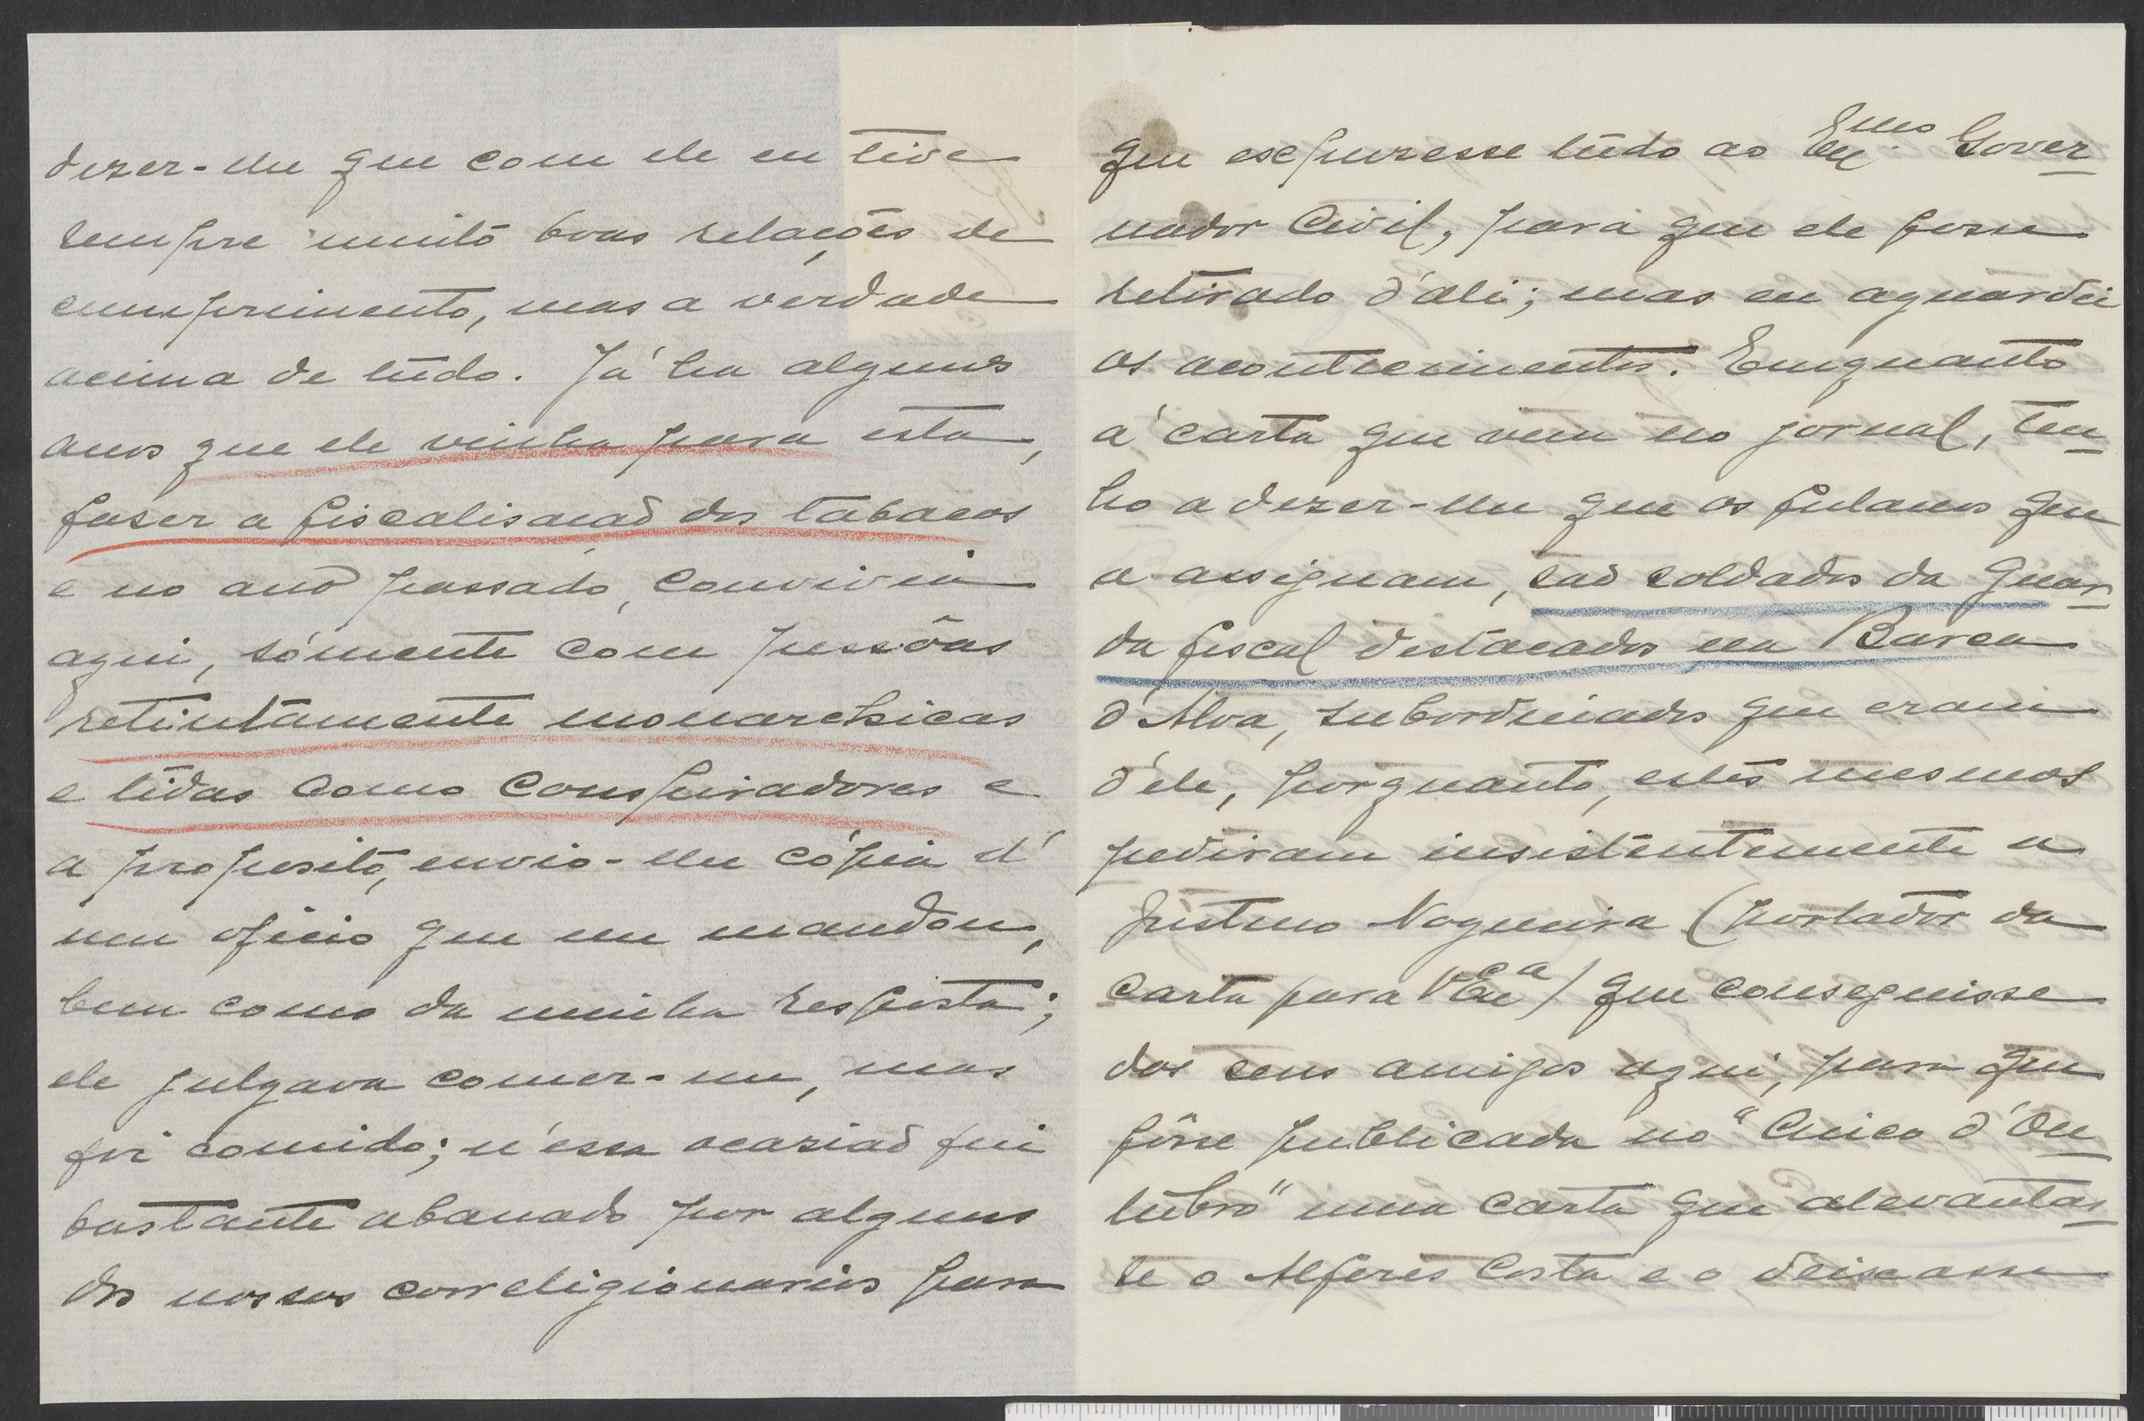 dezer-lhe que com ele eu tive
sempre muito boas relações de
cumprimento, mas a verdade
acima de tudo. Já ha alguns
anos que ele vinha para esta,
faser a fiscalisação dos tabacos
e no ano passado, convivia
aqui, sómente com pessôas
retintamente monarchicas
e tidas como conspiradores e
a proposito, envio-lhe cópia d'
um oficio que me mandou,
bem como da minha resposta;
ele julgava comer-me, mas
foi comido; n'essa ocasião fui
bastante abanado por alguns
dos nossos correligionarios para
que expuzesse tudo ao Exmo Gover
nador Civil, para que ele fosse
retirado d'ali; mas eu aguardei
os acontecimentos. Emquanto
á carta que vem no jornal, ten
ho a dezer-lhe que os fulanos que
a assignam, são soldados da guar
da fiscal destacados na Barca
d'Alva, subordinados que eram
d'ele, porquanto, estes mesmos
pediram insistentemente a
Justino Nogueira (portador da
carta para V Exca) que conseguisse
dos seus amigos aqui, para que
fôsse publicada no "Cinco d'Ou
tubro" uma carta que alevantas
se o Alferes Costa e o deixasse